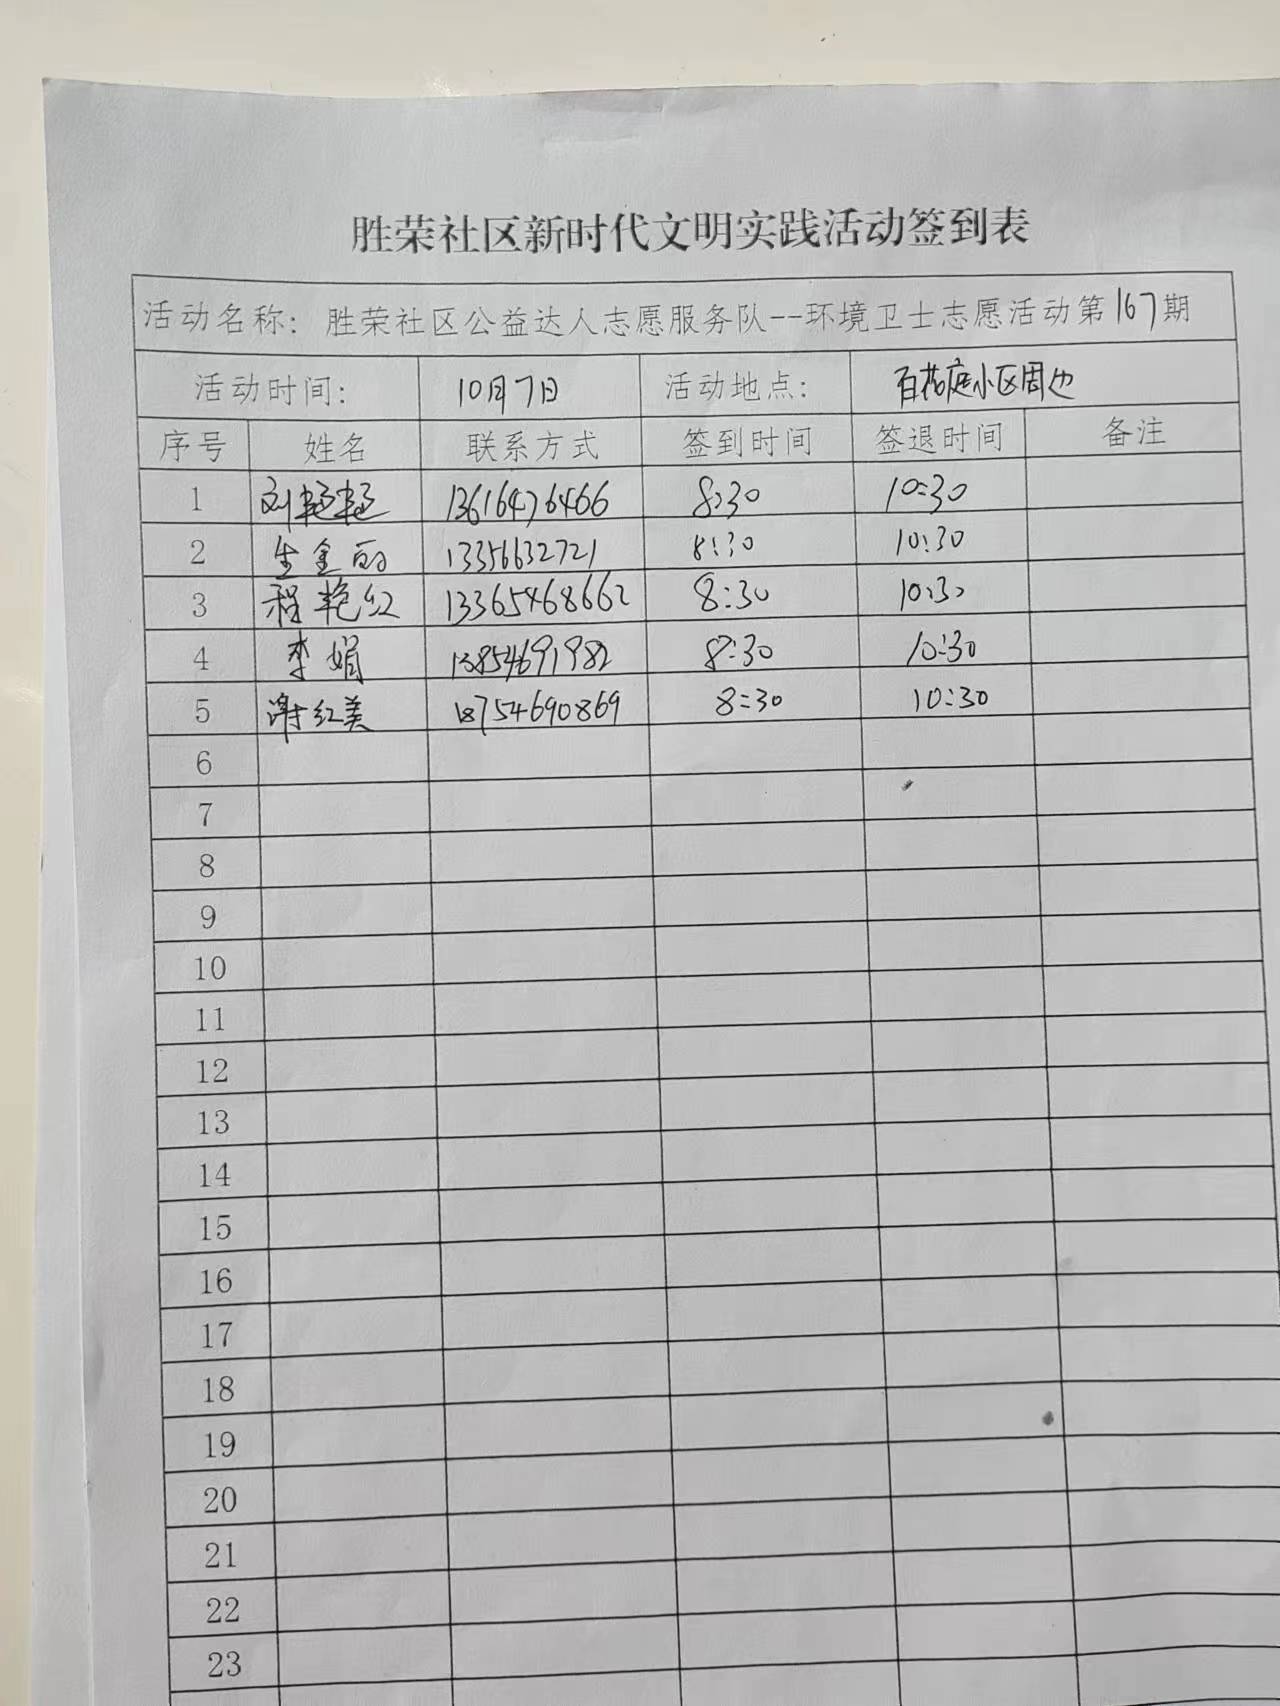 胜荣社区新时代文明实践活动签到表
活动名称：胜荣社区公益达人志愿服务队--环境卫士志愿活动第167期
活动时间： 10月7日 活动地点： 百花庭小区周边
序号 姓名 联系方式 签到时间 签退时间 备注
1 刘艳艳 13616476466 8:30 10:30
2 生金丽 13356632721 8:30 10:30
3 程艳红 13365468662 8:30 10:30
4 李娟 13854691982 8:30 10:30
5 谢红美 18754690869 8:30 10:30
6
7
8
9
10
11
12
13
14
15
16
17
18
19
20
21
22
23